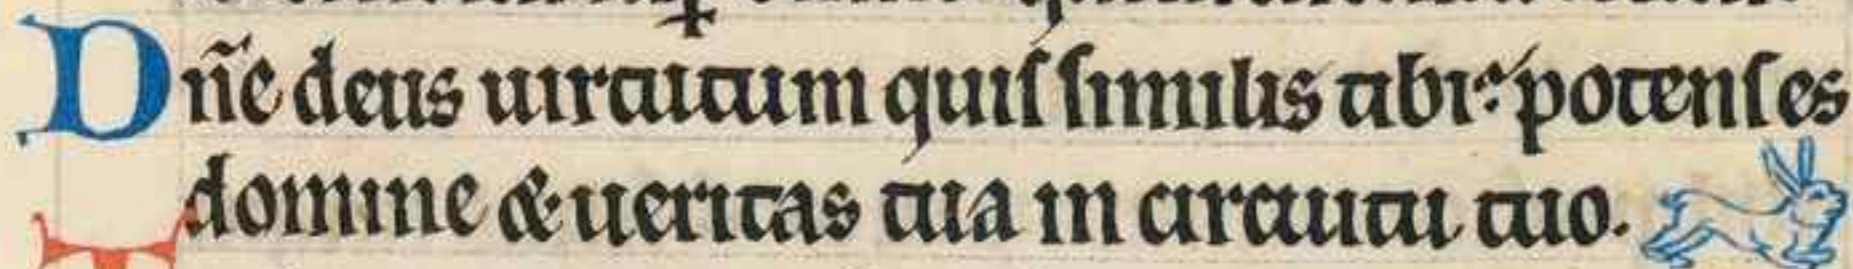 Dñe deus uirtutum quis similis tibi? potens es
domine & ueritas tua in circuitu tuo.